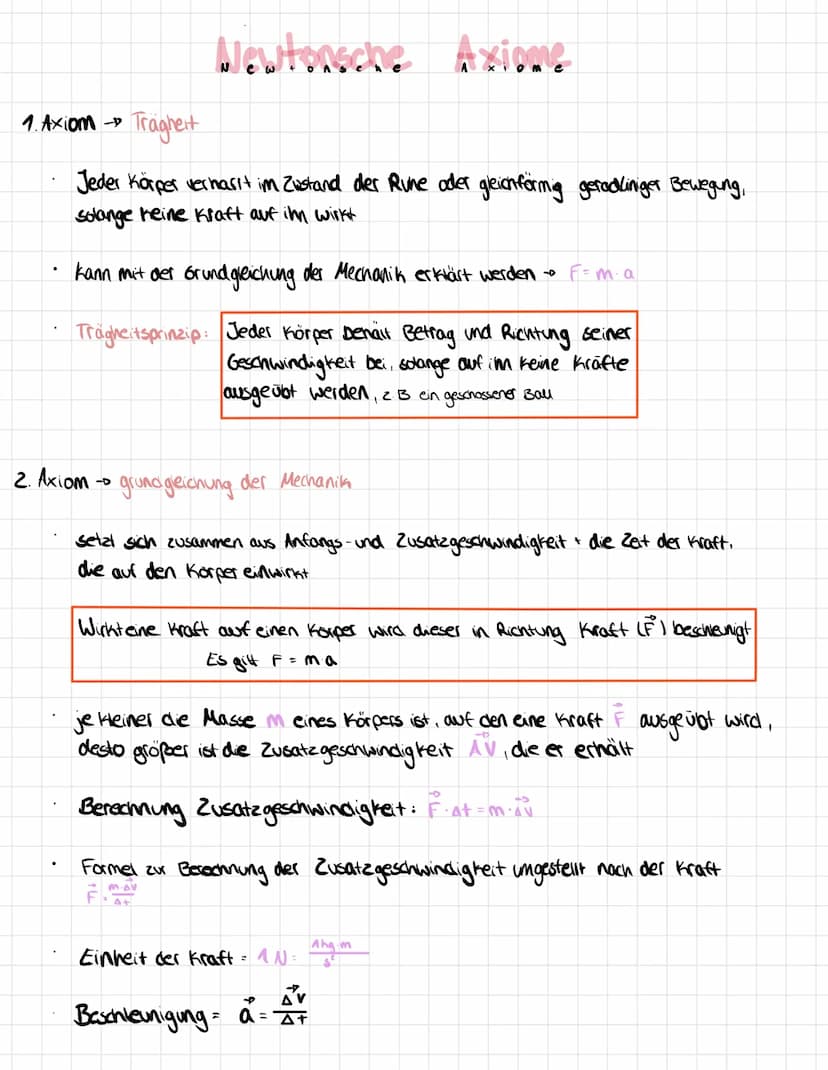 Newtonsche Axiome
Newtonsche Axiome
1. Axiom → Trägheit
· Jeder Körper verharrt im Zustand der Ruhe oder gleichförmig geradliniger Bewegung,
solange keine Kraft auf ihn wirkt
· kann mit der Grundgleichung der Mechanik erklärt werden → F = m · a
· Trägheitsprinzip: Jeder Körper behält Betrag und Richtung seiner
Geschwindigkeit bei, solange auf im keine Kräfte
ausgeübt werden, z B ein geschossener Ball
2. Axiom → grundgleichung der Mechanik
· setzt sich zusammen aus Anfangs- und Zusatzgeschwindigkeit + die Zeit der Kraft,
die auf den Körper einwirkt
Wirkt eine Kraft auf einen Körper wird dieser in Richtung Kraft (F⃗) beschleunigt
Es gilt F = m a
· je kleiner die Masse m eines Körpers ist, auf den eine Kraft F⃗ ausgeübt wird,
desto größer ist die Zusatzgeschwindigkeit Δv⃗, die er erhält
· Berechnung Zusatzgeschwindigkeit: F⃗ · Δt = m · Δv⃗
· Formel zur Berechnung der Zusatzgeschwindigkeit umgestellt nach der Kraft
F⃗ = m·Δv⃗ / Δt
· Einheit der Kraft = 1 N = 1kg·m / s²
· Beschleunigung = a⃗ = Δv⃗ / Δt